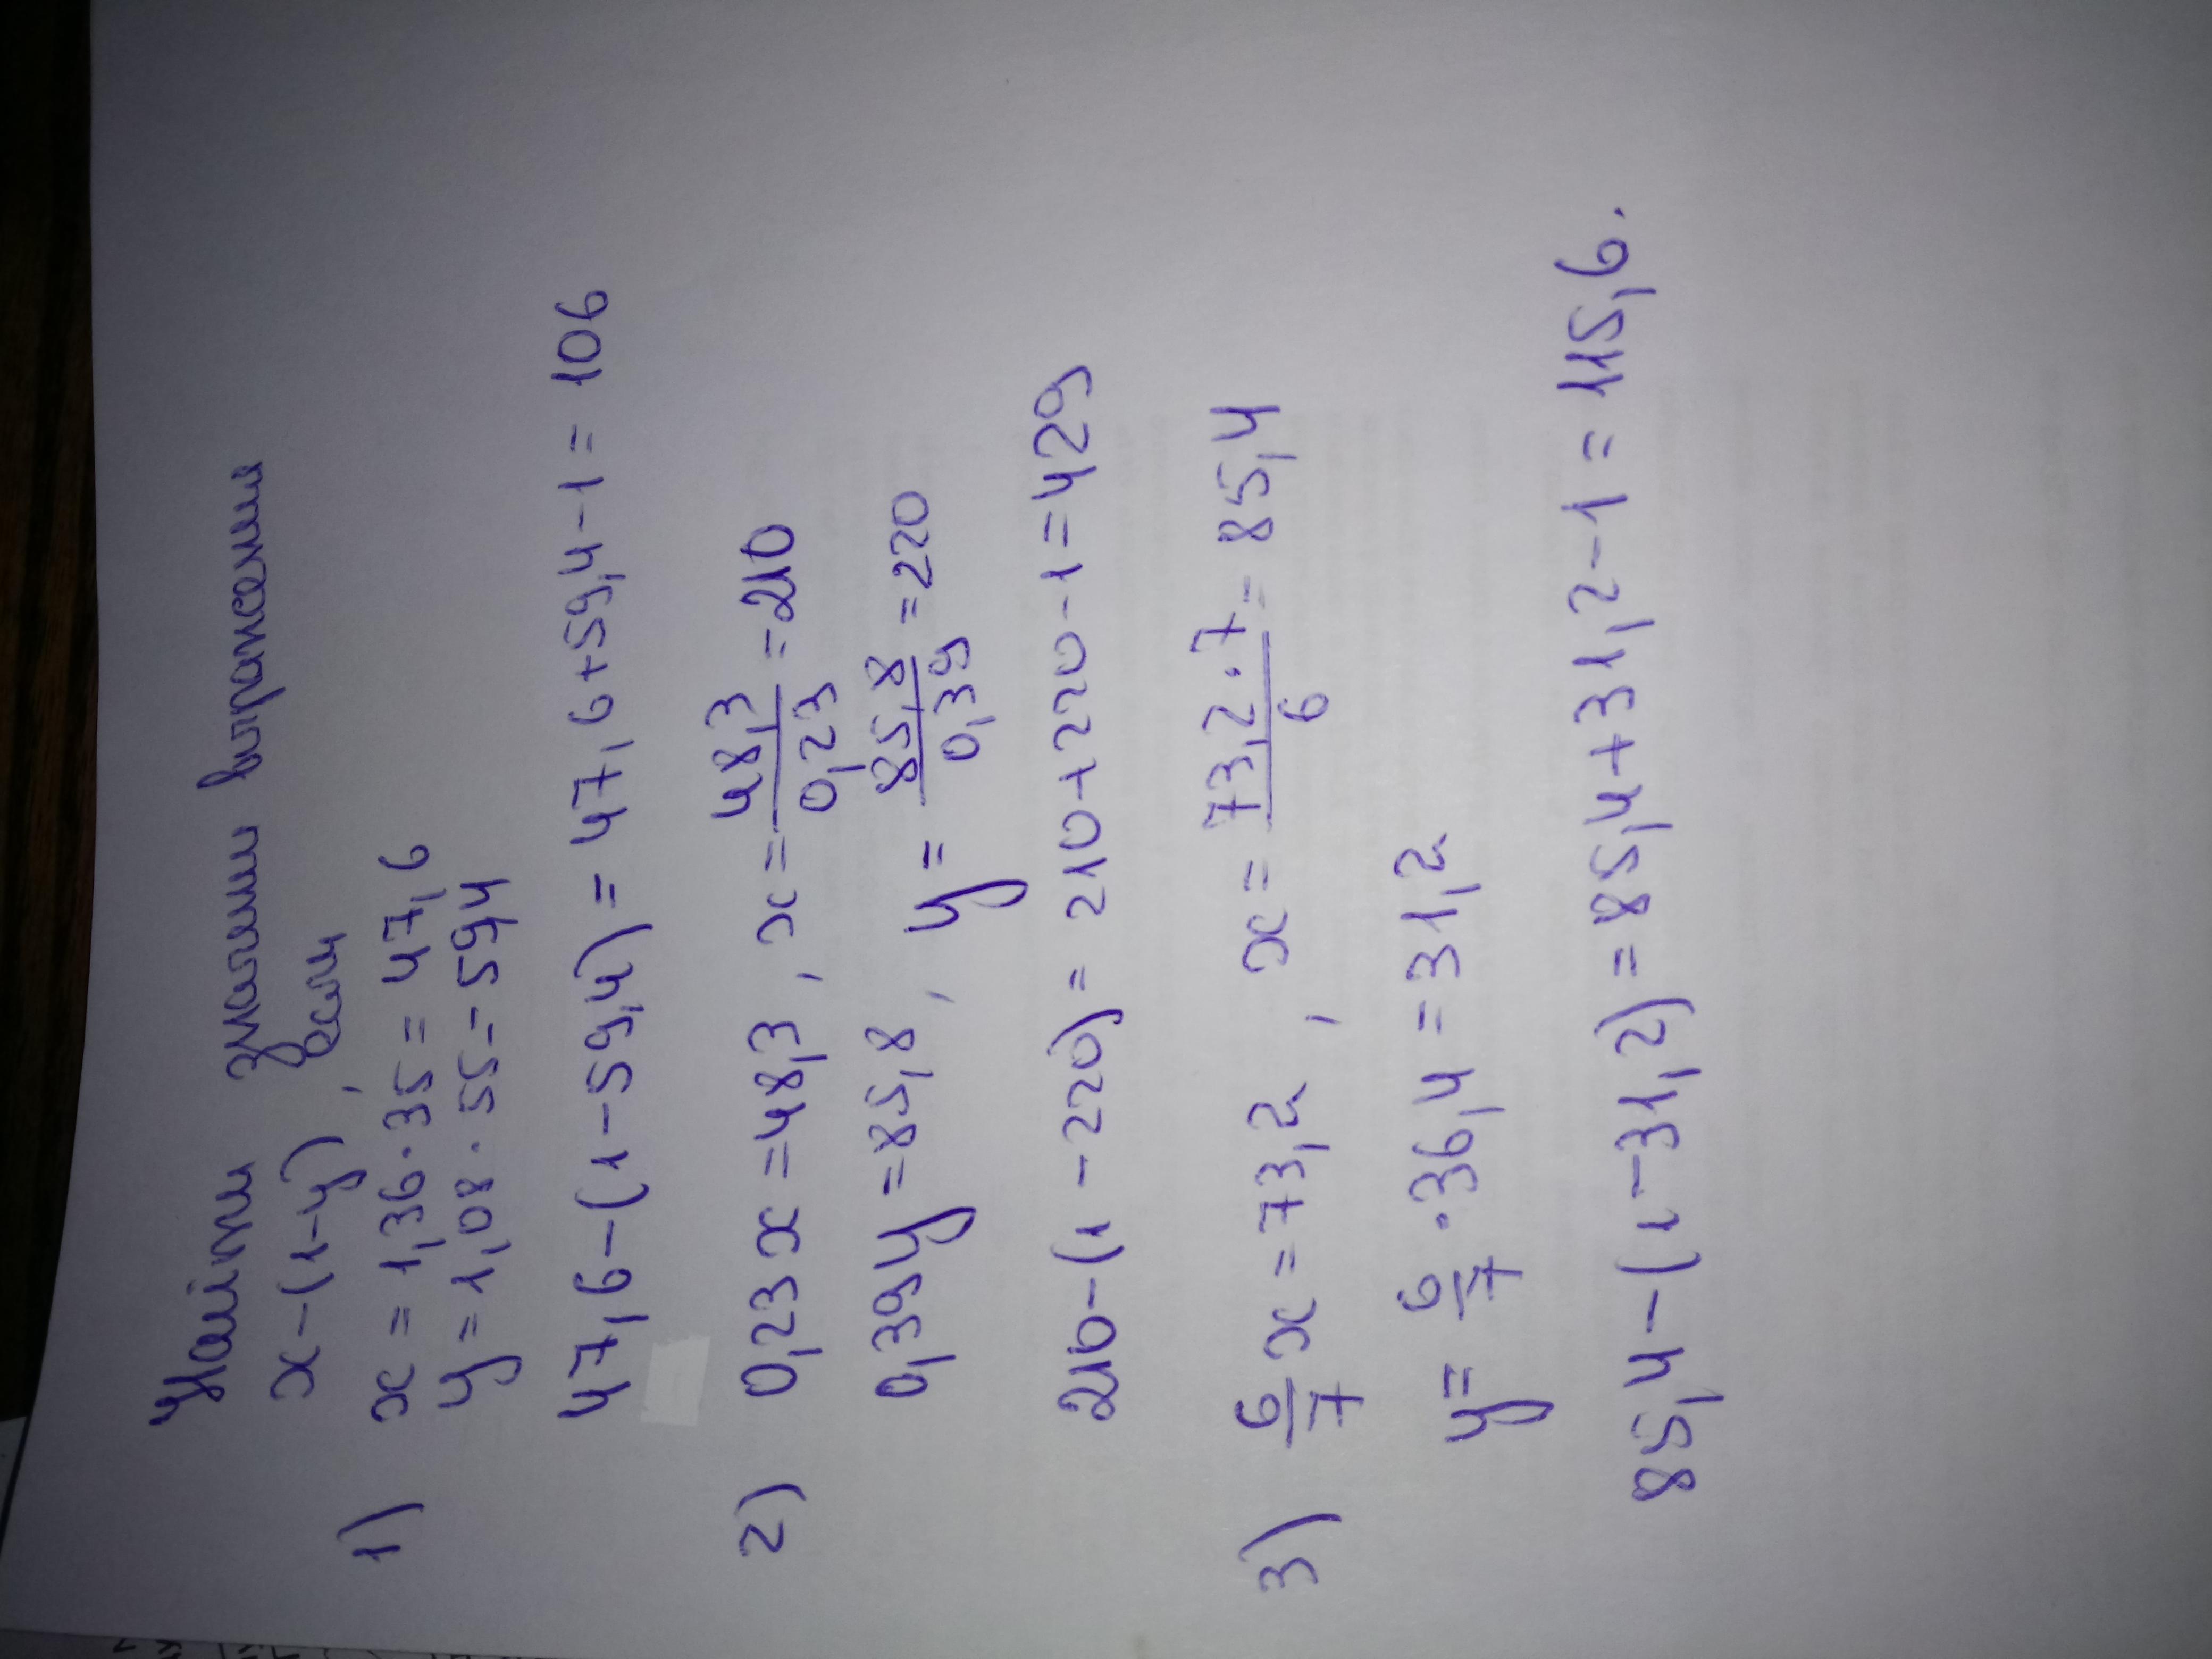 Найти значения выражений
x-(1-y), если
1) x = 1,36·35 = 47,6
y = 1,08·55 = 59,4
47,6-(1-59,4) = 47,6+59,4-1 = 106
2) 0,23x = 48,3, x = 48,3/0,23 = 210
0,39y = 85,8, y = 85,8/0,39 = 220
210-(1-220) = 210+220-1 = 429
3) 6/7 x = 73,2, x = 73,2·7/6 = 85,4
y = 6/7·36,4 = 31,2
85,4-(1-31,2) = 85,4+31,2-1 = 115,6.